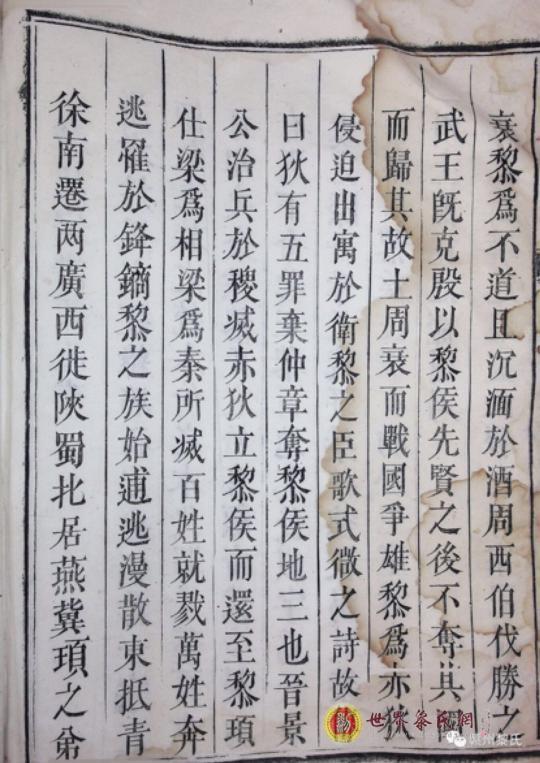 衰黎為不道且沉湎於酒周西伯伐勝之
武王旣克殷以黎侯先賢之後不奪其國
而歸其故土周衰而戰國爭雄黎爲赤狄
侵迫出寓於衛黎之臣歌式微之詩故
曰狄有五罪棄仲章奪黎侯地三也晉景
公治兵於稷滅赤狄立黎侯而還至黎頊
仕梁爲相梁爲秦所滅百姓就戮萬姓奔
逃罹於鋒鏑黎之族始逋逃漫散東抵青
徐南遷两廣西徙陝蜀北居燕冀頊之弟
世界黎氏網
黎氏